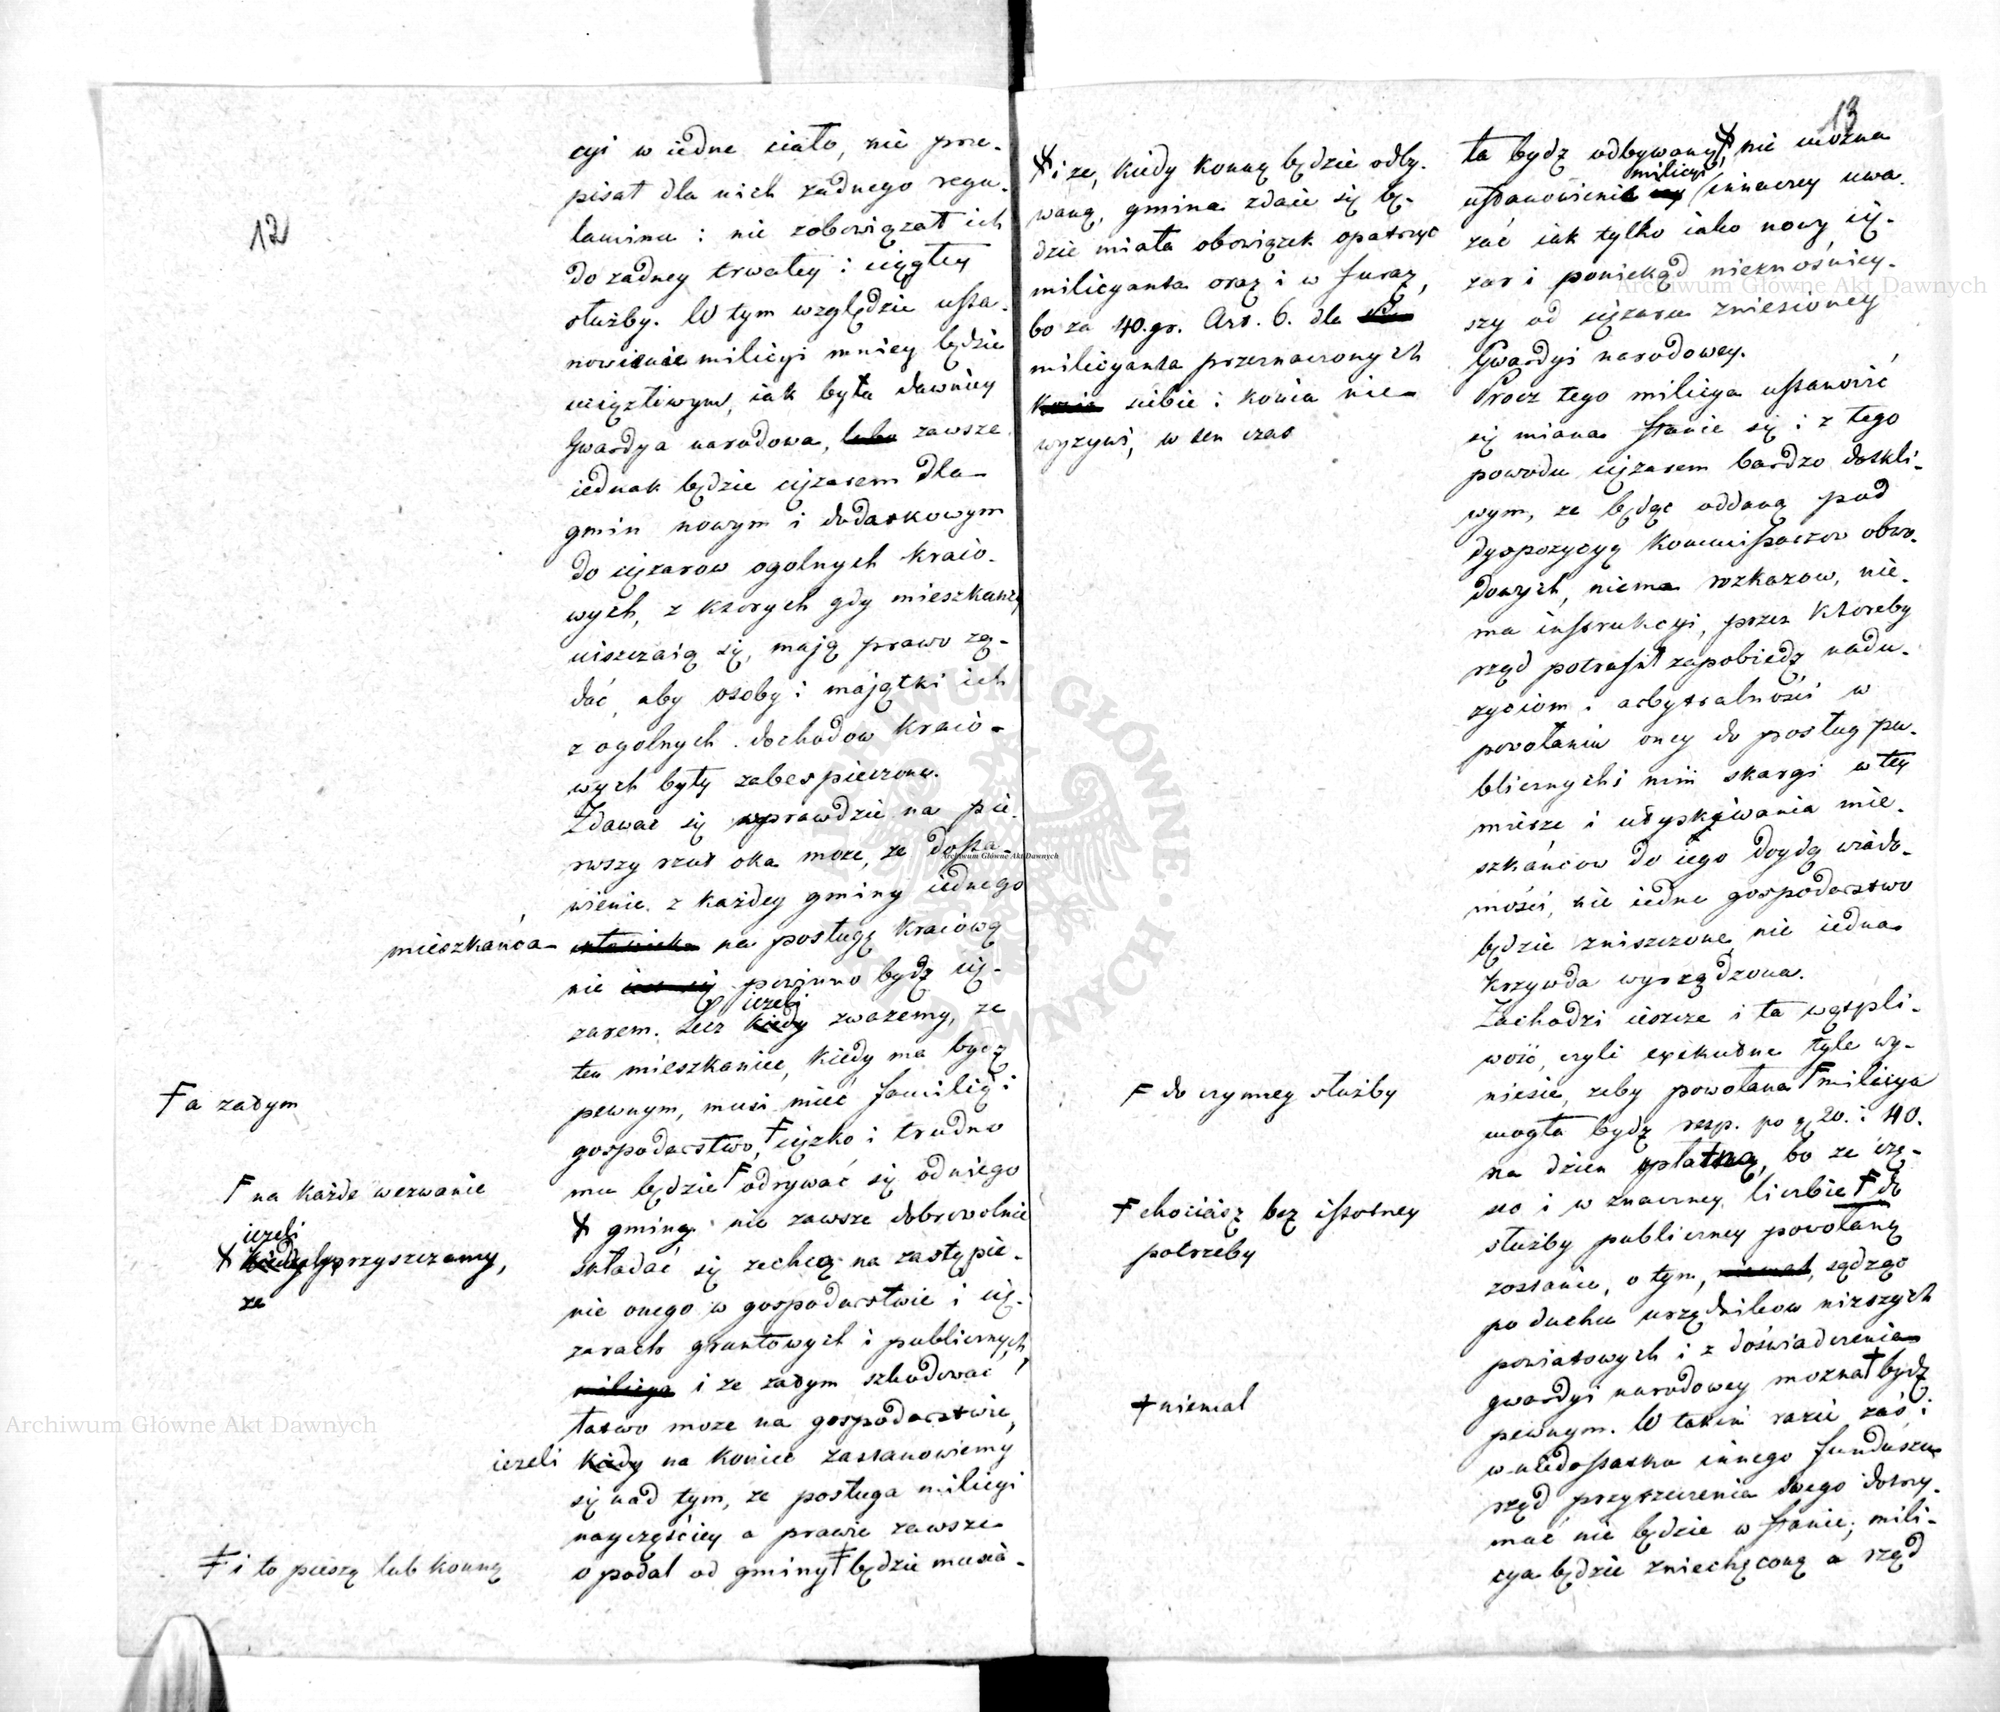 12
cyi w iedne ciało, nie prze-
pisał dla nich żadnego regu-
laminu : nie zobowiązał ich
do żadney trwałey i ciągłey
służby. W tym względzie usta-
nowienie milicyi mniey będzie
uciążliwym, iak była dawniey
Gwardya narodowa, zawsze
iednak będzie ciężarem dla
gmin nowym i dodatkowym
do ciężarow ogolnych kraio-
wych, z ktorych gdy mieszkańcy
uiszczaią się, mają prawo żą-
dać, aby osoby i majątki ich
z ogolnych dochodow kraio-
wych były zabespieczone.
Zdawać się wprawdzie na pie-
rwszy rzut oka może, że dosta-
wienie z każdey gminy iednego
mieszkańca człowieka na posługę kraiową
nie powinno bydź cię-
żarem. Lecz kiedy ieżeli zważemy, że
ten mieszkaniec, kiedy ma bydź
F a zatym
pewnym, musi mieć familię i
gospodarstwo, F ciężko i trudno
F na każde wezwanie
mu będzie F odrywać się od niego
ieżeli
✗ gminy nie zawsze dobrowolnie
✗ przyszczamy,
że
składać się zechcą na zastąpie-
nie onego w gospodarstwie i cię-
żarach gruntowych i publicznych,
milicya i że zatym szkodować
łatwo może na gospodarstwie,
ieżeli kiedy na koniec zastanowiemy
się nad tym, że posługa milicyi
nayczęściey a prawie zawsze
‡ i to pieszą lub konną
opodal od gminy ‡ będzie musia-
13
✗ i że, kiedy konną będzie odby-
waną, gmina zdaie się bę-
dzie miała obowiązek opatrzyć
milicyanta oraz i w furaż,
bo za 40. gr. Art. 6. dla
milicyanta przeznaczonych
konia siebie i konia nie
wyżywi, w ten czas
ta bydź odbywaną, ✗ nie można
milicyi
ustanowienia inaczey uwa-
żać iak tylko iako nowy cię-
żar i poniekąd nieznośniey-
szy od ciężaru zniesioney
Gwardyi narodowey.
Procz tego milicya ustanowić
się miana stanie się i z tego
powodu ciężarem bardzo dotkli-
wym, że będąc oddaną pod
dyspozycyą Kommissarzow obwo-
dowych, niema rozkazow, nie-
ma instrukcyi, przez ktoreby
rząd potrafił zapobiedz nadu-
życiom i arbytralności w
powołaniu oney do posług pu-
blicznych i nim skargi w tey
mierze i utyskiwania mie-
szkańcow do iego doydą wiado-
mości, nie iedne gospodarstwo
będzie zniszczone, nie iedna
krzywda wyrządzona.
Zachodzi ieszcze i ta wątpli-
wość, czyli exekutne tyle wy-
niesie, żeby powołana F milicya
F do czynney służby
mogła bydź resp. po gr 20. i 40.
na dzien opłatną, bo że czę-
sto i w znaczney liczbie F do
F chociasz bez istotney
potrzeby
służby publiczney powołaną
zostanie, o tym, niemal, sądząc
po duchu urzędnikow niższych
powiatowych i z doświadczenia
gwardyi narodowey można + bydź
+ niemal
pewnym. W takim razie zaś i
w niedostatku innego funduszu
rząd przyrzeczenia swego dotrzy-
mać nie będzie w stanie; mili-
cya będzie zniechęconą a rząd
Archiwum Główne Akt Dawnych